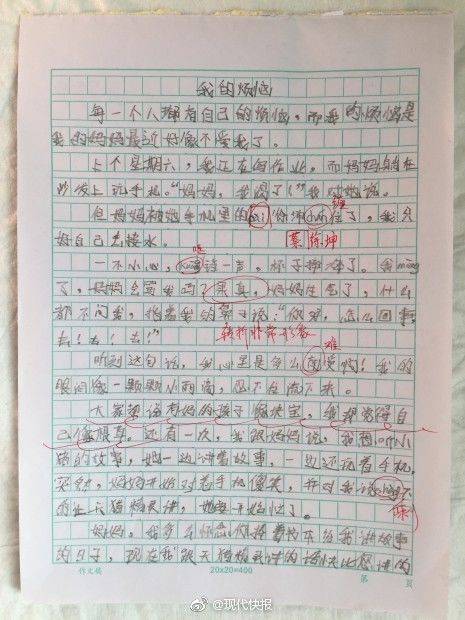 我的烦恼
每一个人都有自己的烦恼，而我的烦恼是
我的妈妈最近好像不爱我了。
上个星期六，我正在写作业，而妈妈躺在
沙发上玩手机。“妈妈，我渴了！”我对她说。
但妈妈被她手机里的
住了，我只
缠
好自己去接水。
蔡徐坤
一不小心，
一声，杯子摔碎了。我
了，妈妈会骂我吗？果真，妈妈生气了，什么
都不问我，指着我的鼻子说：“你呀，怎么回事，
去！去！去！”
转折非常形象
难
听到这句话，我心里是多么
受啊！我的
眼泪像一颗颗小雨滴，忍不住流下来。
大家都说有妈的孩子像块宝，我却觉得自
己像根草。还有一次，我跟妈妈说，我想听小
猪的故事，她一边讲着故事，一边还看着手机，
突然，妈妈开始对着手机傻笑，并对我说
天猫精灵讲，她
陈
妈妈，我多么怀念你捧着书本给我讲故事
的日子，现在我跟天猫精灵讲的话快比您讲的
作文稿
20×20=400
第 页
@现代快报